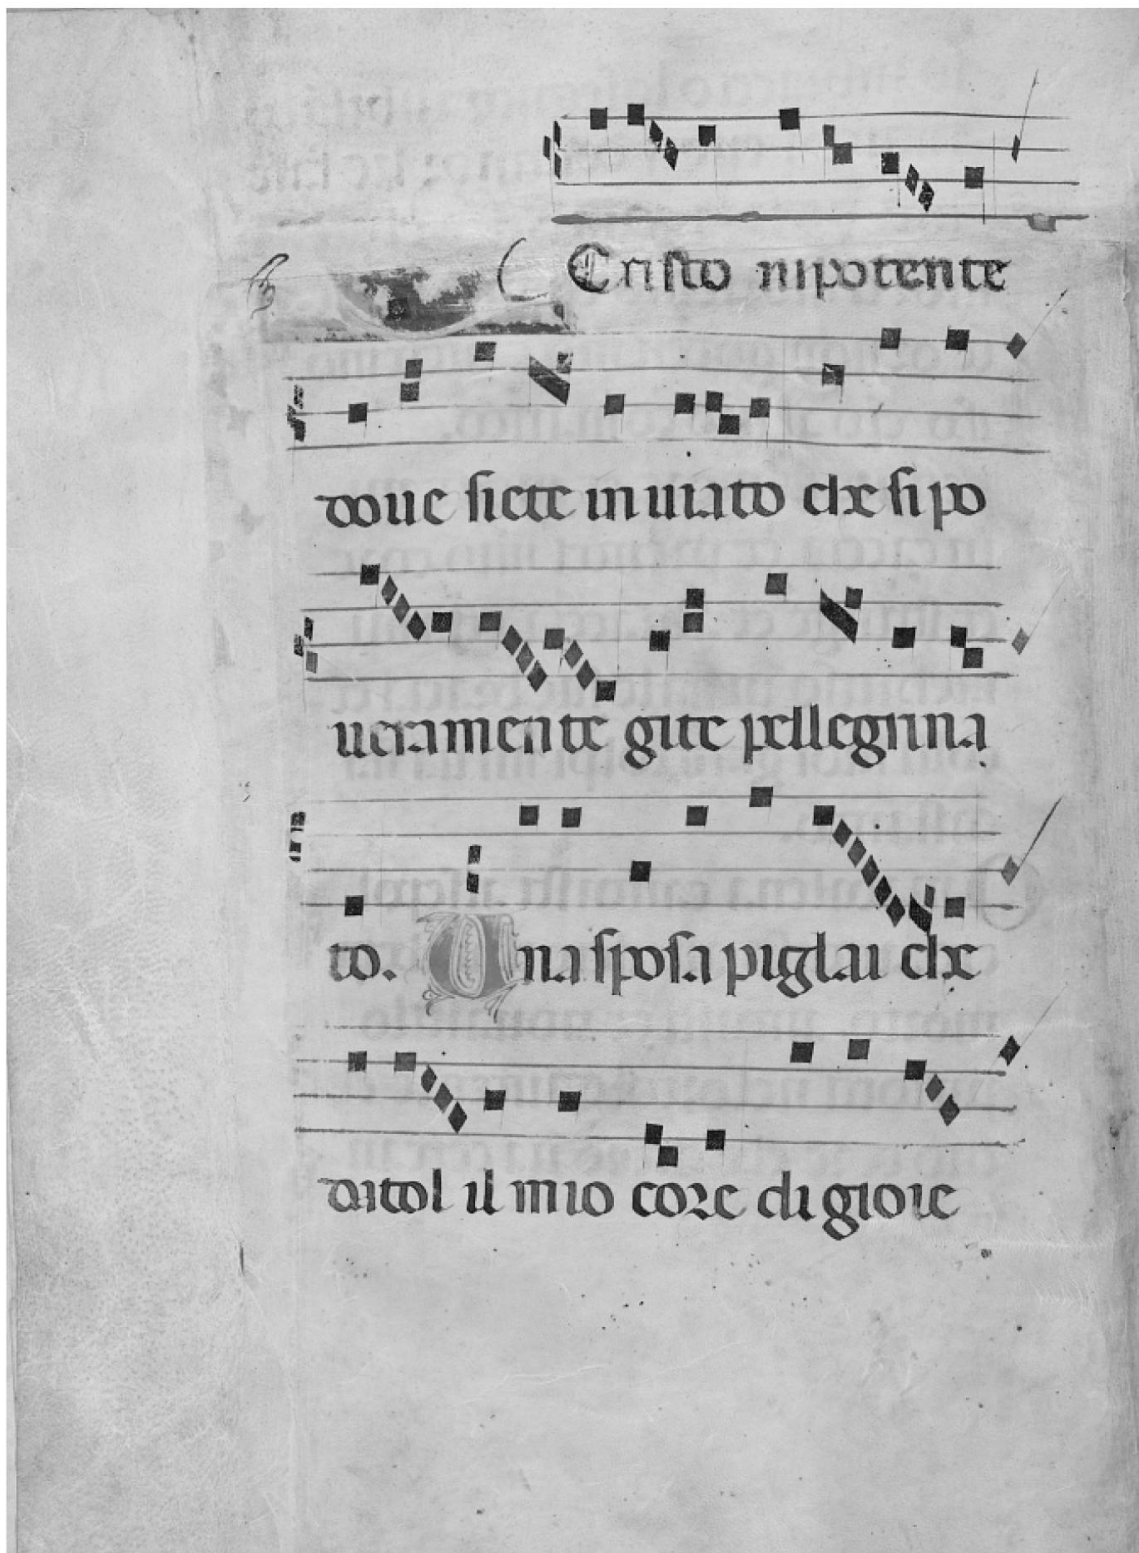 Cristo nipotente
doue siete inuiato che si po
ueramente gite pellegrina
to. Una sposa piglai che
datol il mio core di gioie